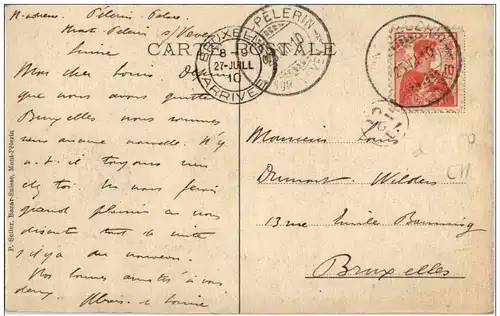 N. adresse Pèlerin Palace
Mont Pèlerin s/Vevey
Suisse
CARTE POSTALE
BRUXELLES
8-
27-JUILL
10
ARRIVEE
PÈLERIN
Mon cher Louis
que vous avez quitté
Bruxelles nous sommes
sans aucune nouvelle. N'y
a-t-il toujours rien
chez toi. Tu nous ferais
grand plaisir en nous
disant tout de suite
s'il y a du nouveau.
Nos bonnes amitiés à vous
deux.
P. Seiler, Bazar-Suisse, Mont-Pèlerin.
Monsieur Louis
Dumont Wilders
13 rue Emile Banning
Bruxelles